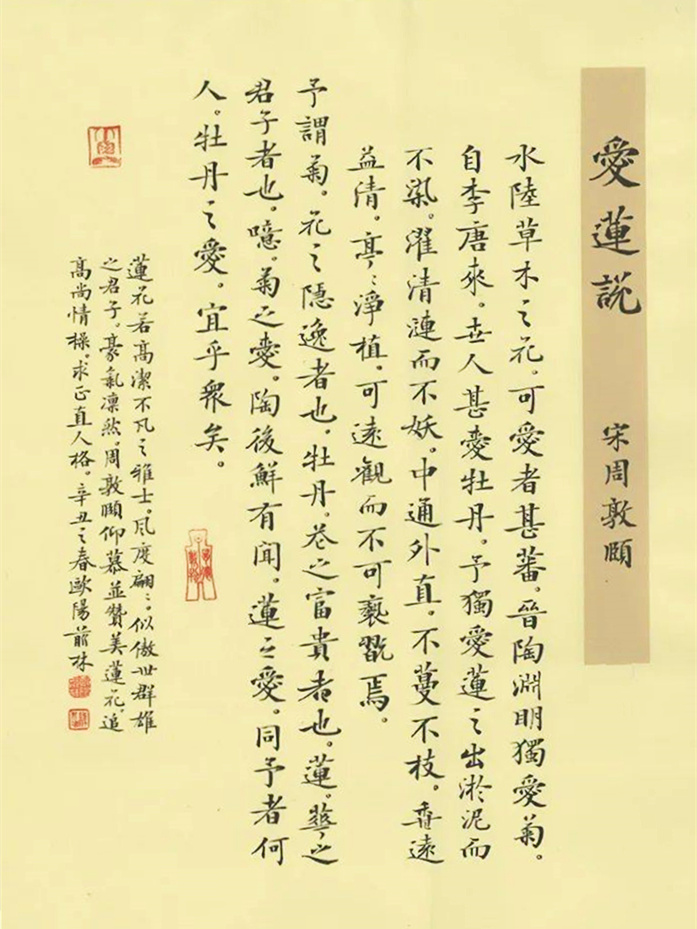 愛蓮說
宋周敦頤
水陸草木之花。可愛者甚蕃。晉陶淵明獨愛菊。
自李唐來。世人甚愛牡丹。予獨愛蓮之出淤泥而
不染。濯清漣而不妖。中通外直。不蔓不枝。香遠
益清。亭〻淨植。可遠觀而不可褻翫焉。
予謂菊。花之隱逸者也。牡丹。花之富貴者也。蓮。華之
君子者也。噫。菊之愛。陶後鮮有聞。蓮之愛。同予者何
人。牡丹之愛。宜乎眾矣。
蓮花若高潔不凡之雅士。風度翩〻。似傲世群雄
之君子。豪氣凛然。周敦頤仰慕並贊美蓮花。追
高尚情操。求正直人格。辛丑之春歐陽前林